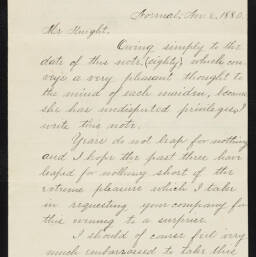 Normal, Jan. 2, 1880.
Mr Knight.
Owing simply to the
date of this note, (eighty) which con-
veys a very pleasant thought to
the mind of each maiden, because
she has undisputed privileges, I
write this note.
Years do not leap for nothing
and I hope the past three have
leaped for nothing short of the
extreme pleasure which I take
in requesting your company for
this evening to a surprise.
I should of cause feel very
much embarrassed to take this